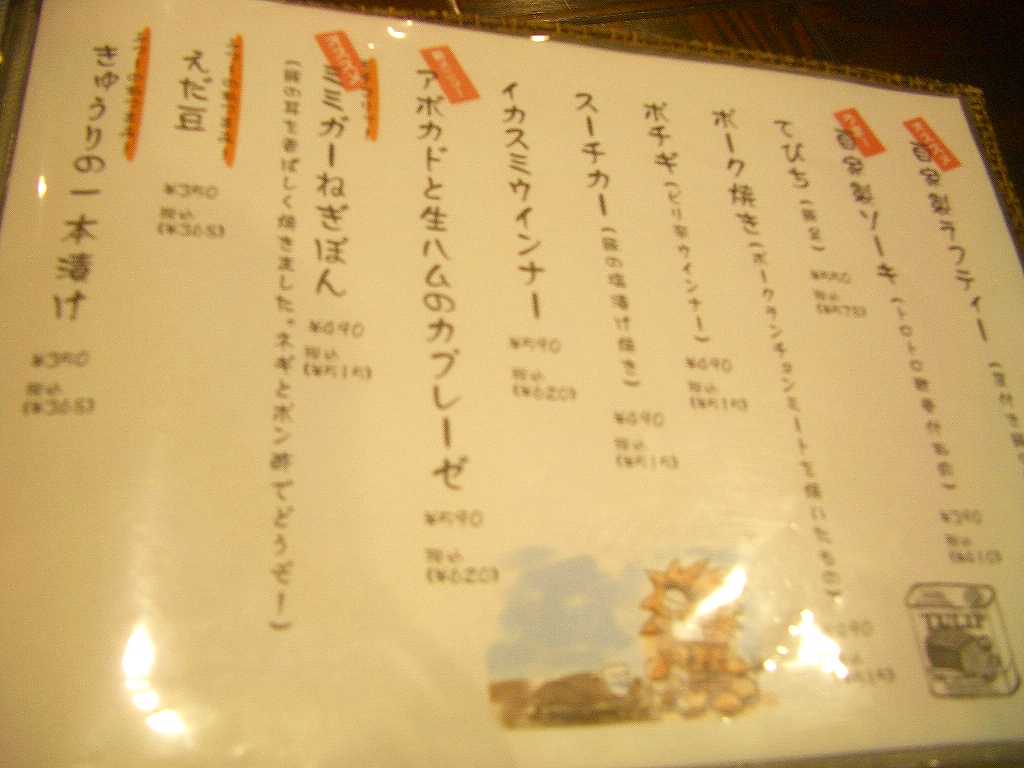 自家製ラフティー
自家製ソーキ(トロトロ軟骨付豚肉)
¥390
税込
(¥410)
てびち(豚足)
¥550
税込
(¥578)
ポーク焼き(ポークランチョンミートを焼いたもの)
ポチギ(ピリ辛ウインナー)
¥490
税込
(¥515)
スーチカー(豚の塩漬け焼き)
¥490
税込
(¥515)
イカスミウィンナー
¥590
税込
(¥620)
アボカドと生ハムのカプレーゼ
¥590
税込
(¥620)
ミミガーねぎぽん
(豚の耳を香ばしく焼きました。ネギとポン酢でどうぞ!)
¥490
税込
(¥515)
えだ豆
¥350
税込
(¥368)
きゅうりの一本漬け
¥350
税込
(¥368)
TULIP